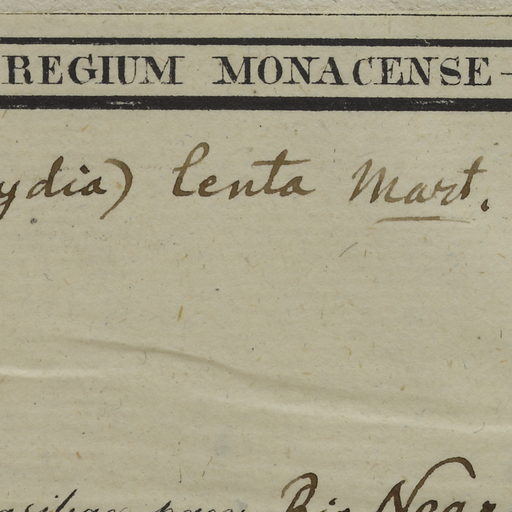 REGIUM MONACENSE -
ydia) lenta Mart.
Rio Negr